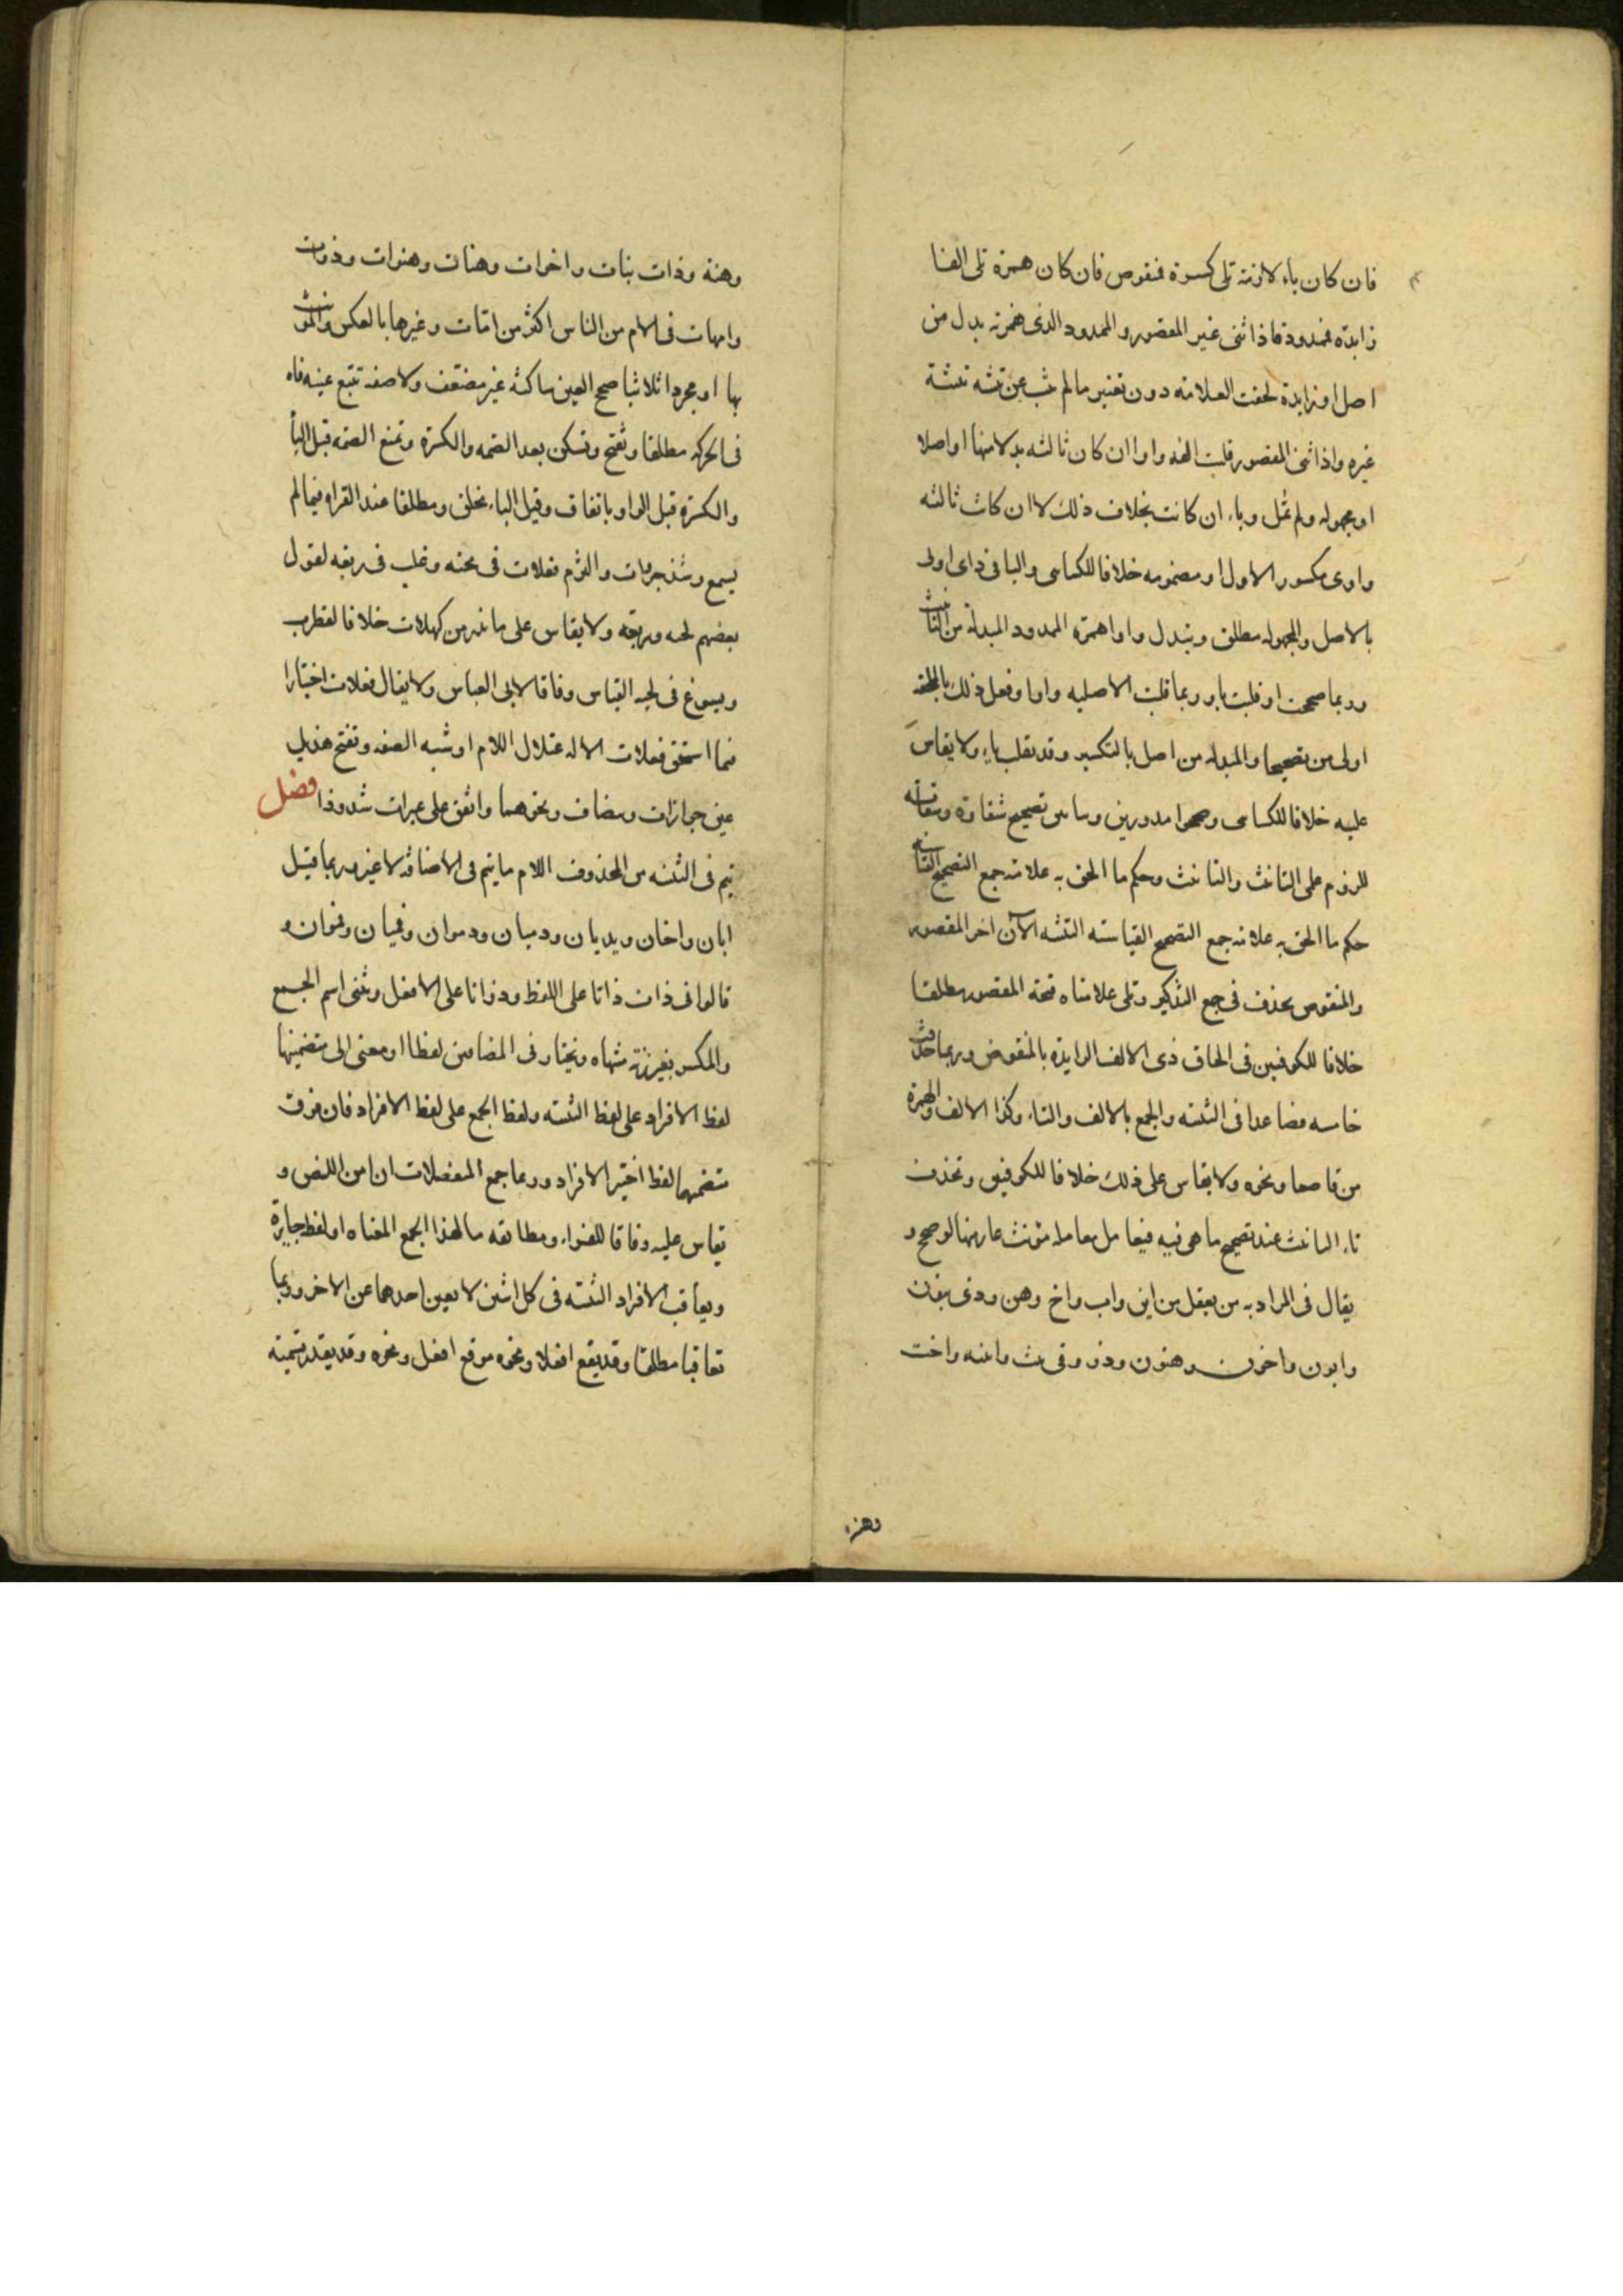 فان كان ياء لازمة تلى كسرة فمنقوص فان كان همزة تلى الفا
زايدة فممدود فاذا ثنى غير المقصور والممدود الذى همزته بدل من
اصل او زايدة لحقت العلامة دون تغيير ما لم تنب عن تثنيه تثنية
غيره واذا ثنى المقصور قلبت الفه واوا ان كان ثالثه بدلا منها او اصلا
او مجهوله ولم تمل وياء ان كانت بخلاف ذلك لا ان كانت ثالثه
واوى مكسور الاول او مضمومه خلافا للكساى والياء فى ذاى اولى
بالاصل والمجهوله مطلق وتبدل واوا همزة الممدود المبدلة من التانيث
وربما صححت او قلبت ياء وربما قلبت الاصليه واوا وفعل ذلك بالملحقه
اولى من تصحيحها والمبدله من اصل بالتكسير وقد تقلب ياء ولا يقاس
عليه خلافا للكساى وصححوا مدورين وساس تصحيح شقاوة وسقايه
للزوم على التانيث والتانيث وحكم ما الحق به علامة جمع التصحيح القياسيه
حكم ما الحق به علامة جمع التصحيح القياسيه التثنيه الا ان اخر المقصور
والمنقوص يحذف فى جمع التذكير وتلى علامتاه فتحة المقصور مطلقا
خلافا للكوفيين فى الحاق ذى الالف الزايدة بالمنقوص وربما حذفت
خامسه فصاعدا فى التثنيه والجمع بالالف والتاء وكذا الالف والهمزة
من قاصعا ونحوه ولا يقاس على ذلك خلافا للكوفيين وتحذف
تاء التانيث عند تصحيح ما هى فيه فيعامل معامله مؤنث عار منها لو صحح و
يقال فى المراد به من يعقل من ابن واب واخ وهن وذى بنون
وابون واخون وهنون وذوو وفى بنت وابنه واخت
وهنه
وهنة وذات بنات واخوات وهنات وهنوات وذوات
وامهات فى الام من الناس اكثر من امّات وغيرها بالعكس والمؤنث
بها او مجردا ثلاثيا صحيح العين ساكنة غير مضعف ولا صفة تتبع عينه فاءه
فى الحركة مطلقا وتفتح وتسكن بعد الضمه والكسرة وتمنع الضمه قبل الياء
والكسرة قبل الواو باتفاق وقبل الياء بخلق ومطلقا عند الفراء فيما لم
يسمع وشذ جروات والتزم فعلات فى لجبه وغلب فى ربعه لقول
بعضهم لجبه وربعه ولا يقاس على ما ندر من كهلات خلافا لقطرب
ويسوغ فى لجبه القياس وفاقا لابى العباس ولا يقال فعلات اختيارا
فيما استحق فعلات الا لاعتلال اللام او شبه الصفه وتفتح هذيل
عين جوازات وبيضات ونحوهما واتفق على عيرات شذوذا فصل
يتم فى التثنيه من المحذوف اللام ما يتم فى الاضافه لا غير وربما قيل
ابان واخان ويديان ودميان ودموان وفميان وفموان و
قالوا فى ذات ذاتا على اللفظ وذواتا على الاصل ويثنى اسم الجمع
والمكسر بغير زنة منتهاه ويختار فى المضافين لفظا او معنى الى متضمنيهما
لفظ الافراد على لفظ التثنيه ولفظ الجمع على لفظ الافراد فان فرق
متضمنهما لفظ اختير الافراد وربما جمع المنفصلان ان امن اللبس و
يقاس عليه وفاقا للفراء ومطابقه ما لهذا الجمع لمعناه او لفظه جايزة
ويعاقب الافراد التثنيه فى كل اثنين لا يعين احدهما عن الاخر وربما
تعاقبا مطلقا وقد يقع افعلا ونحوه موقع افعل ونحوه وقد يقدر تسمية